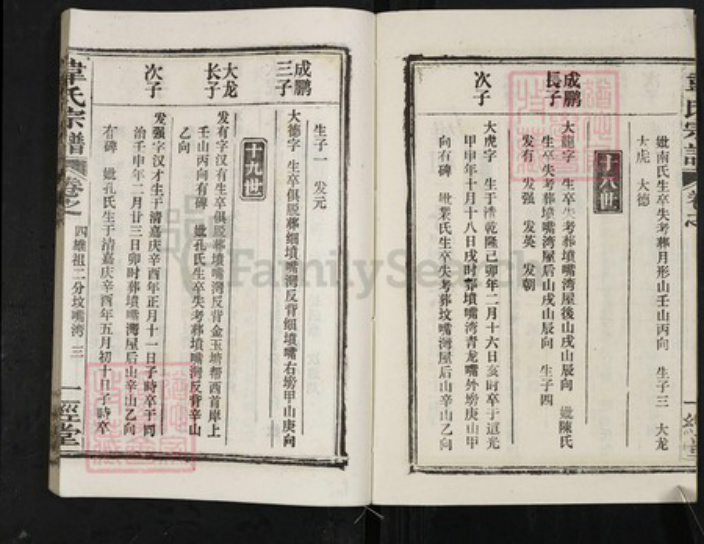 妣南氏生卒失考葬月形山壬山丙向 生子三 大龙
大虎 大德
十八世
成鹏
長子
大龍字 生卒失考葬墳嘴湾屋後山戌山辰向 妣陳氏
生卒失考葬墳嘴湾屋后山戌山辰向 生子四
发有 发强 发英 发朝
次子
大虎字 生于清乾隆己卯年二月十六日亥时卒于道光
甲申年十月十八日戌时葬墳嘴湾青龙嘴外塝庚山甲
向有碑 妣葉氏生卒失考葬坟嘴湾屋后山辛山乙向
成鹏
三子
大德字 生卒俱脱葬细墳嘴湾反背细墳嘴右塝甲山庚向
生子一 发元
十九世
大龙
长子
发有字汉有生卒俱脱葬墳嘴灣反背金玉塘稻西首岸上
壬山丙向有碑 妣孔氏生卒失考葬墳嘴灣反背辛山
乙向
次子
发强字汉才生于清嘉庆辛酉年正月十一日子時卒于同
治壬申年二月廿三日卯时葬墳嘴灣屋后山辛山乙向
有碑 妣孔氏生于清嘉庆辛酉年五月初十日子時卒
韋氏宗譜
卷之
四雄祖二分坟嘴湾 三
一經堂
FamilySearch